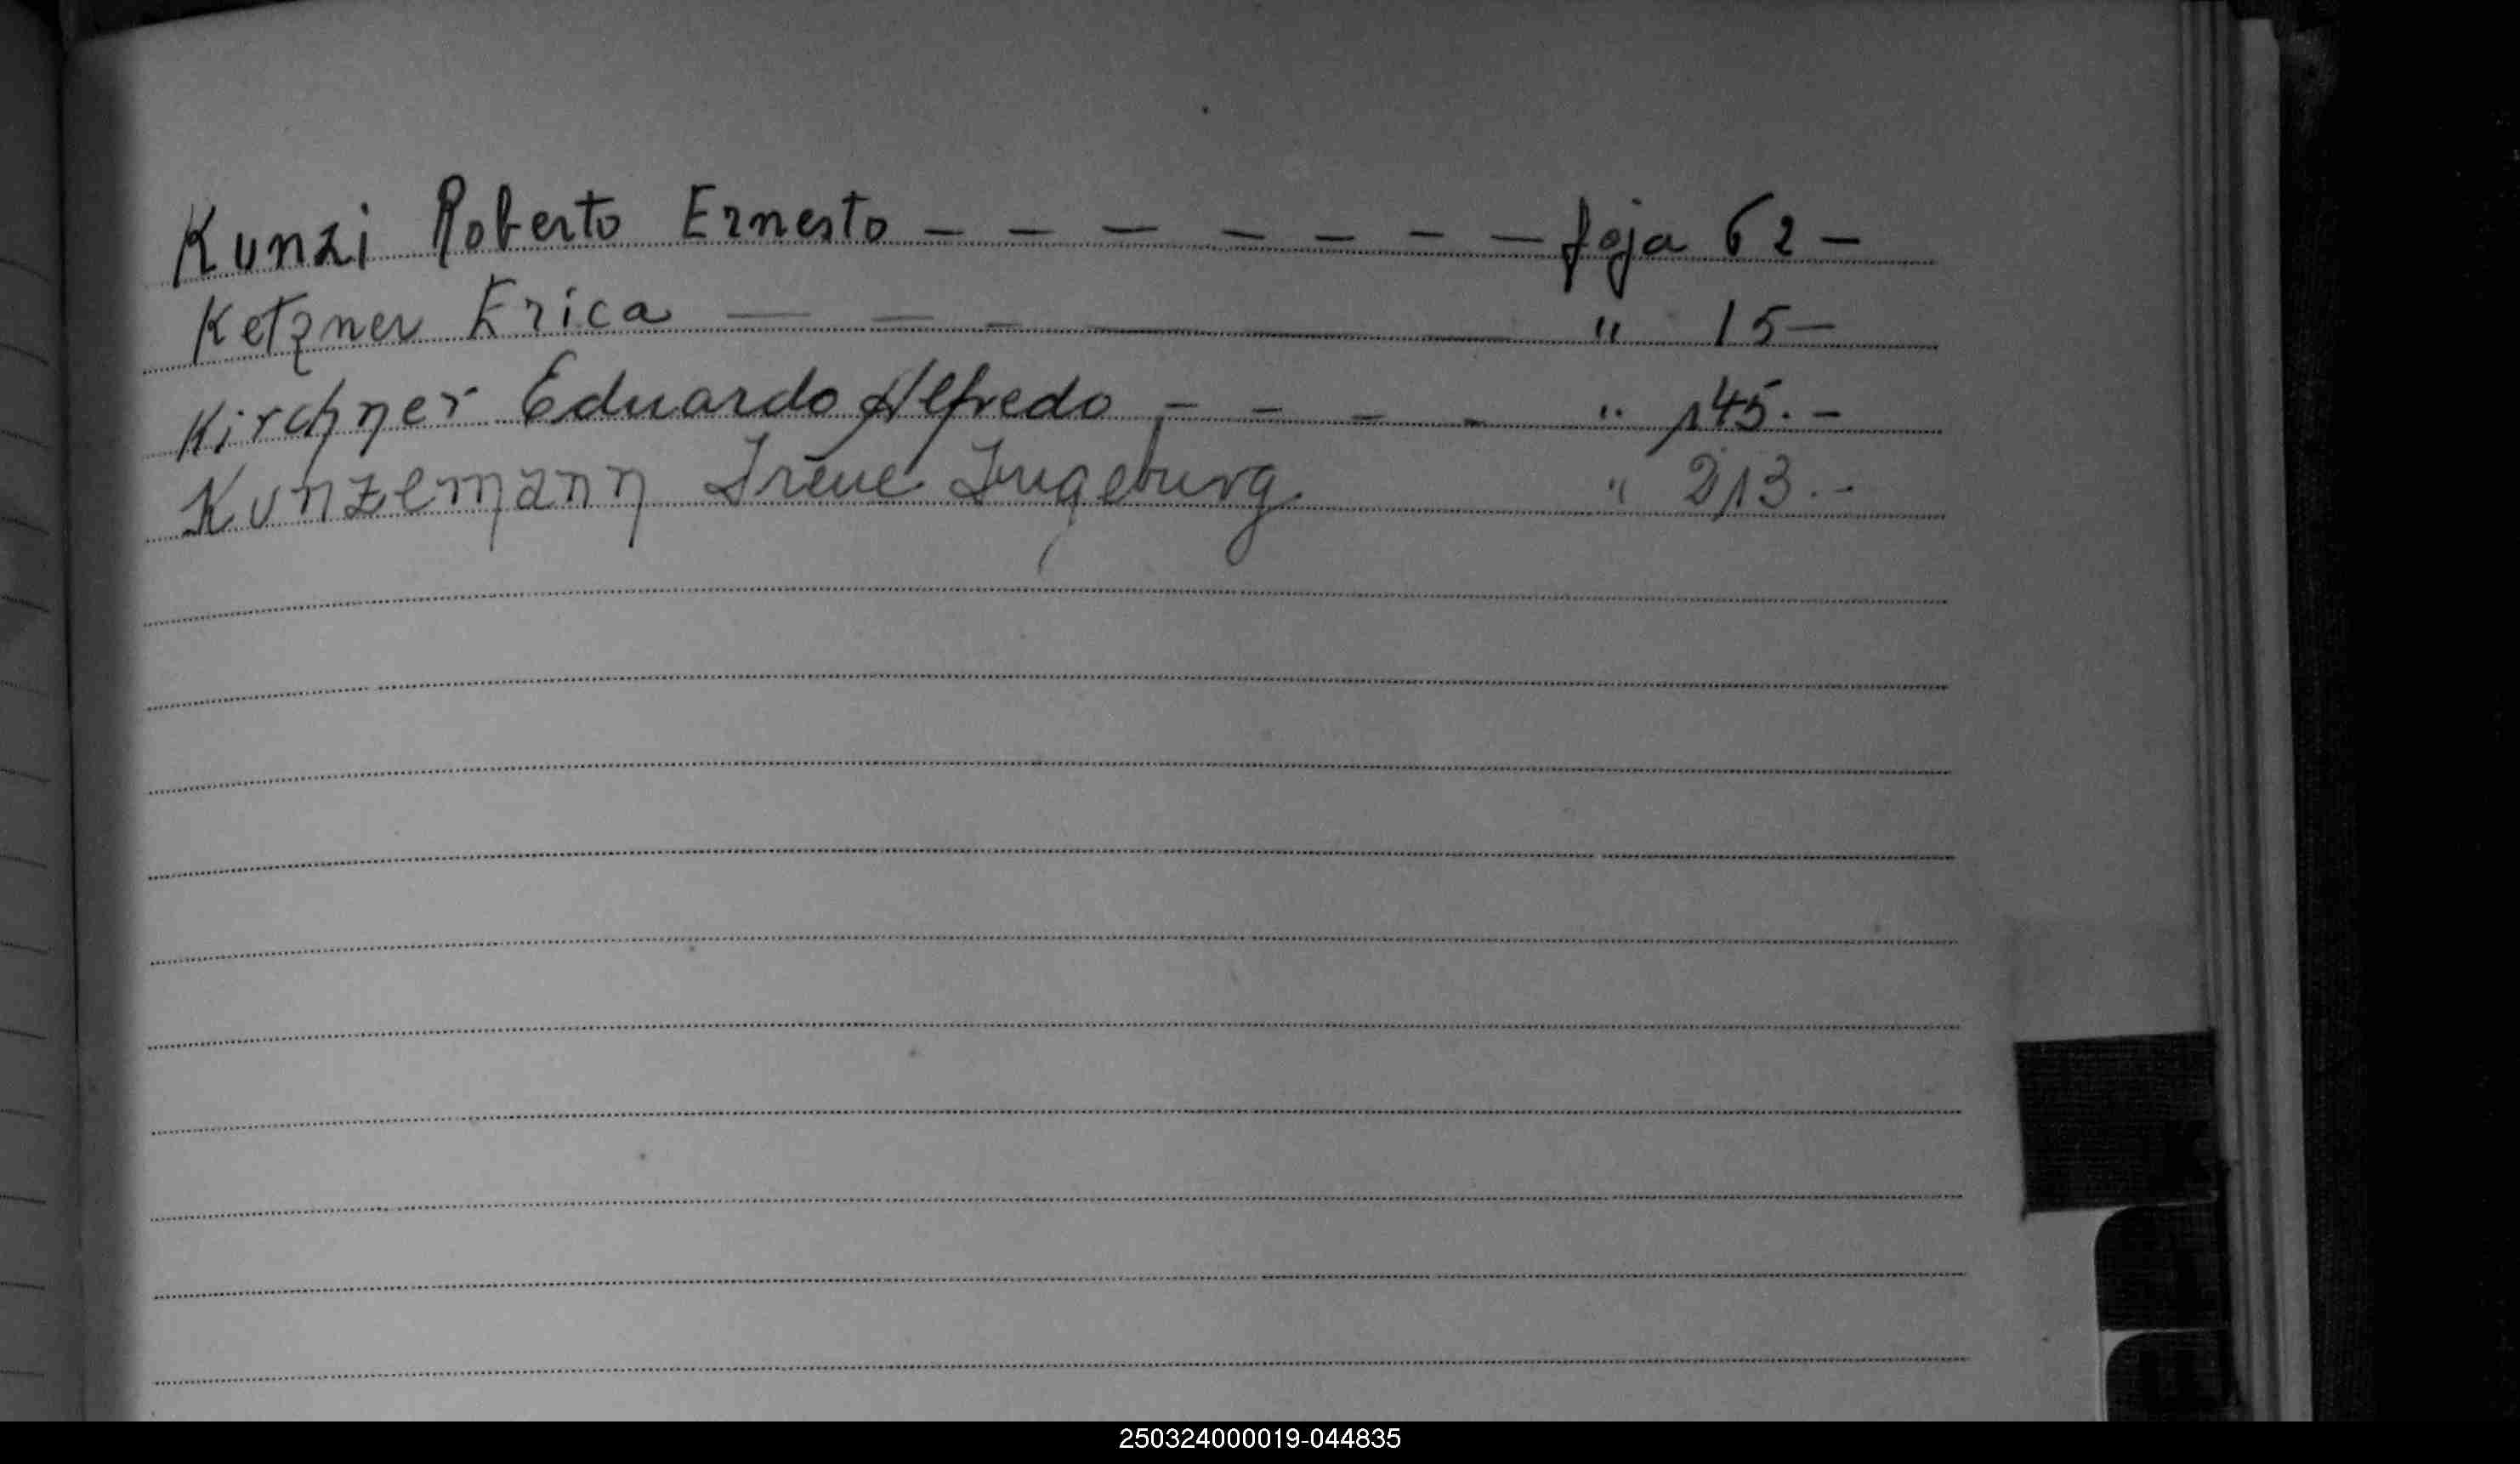 Kunzi Roberto Ernesto - - - - - - - foja 62 -
Ketzner Erica — — - — — " 15 —
Kirchner Eduardo Alfredo - - - - " 145. -
Kunzemann Irene Ingeburg " 213. -
250324000019-044835